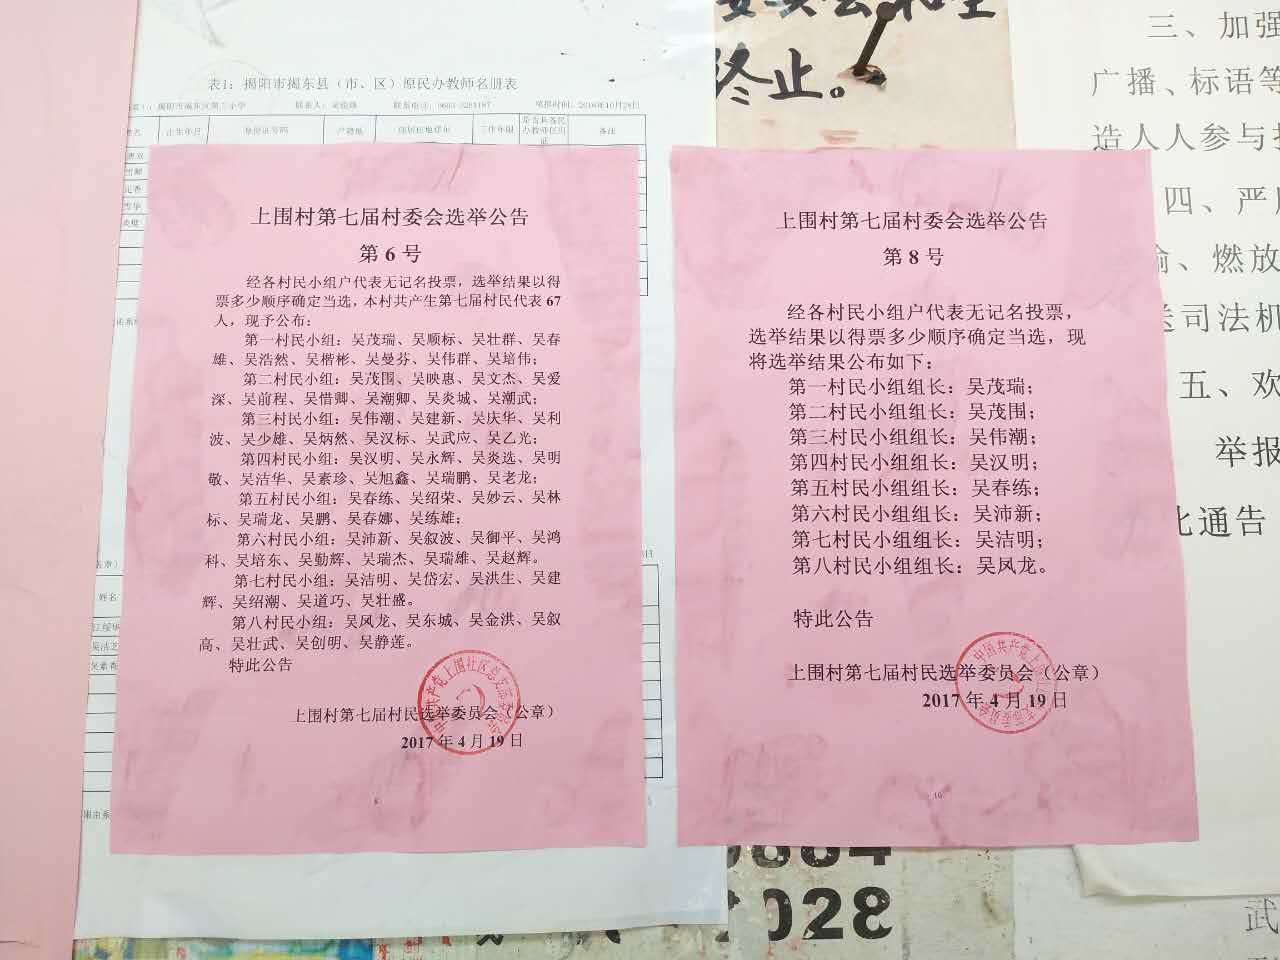 表1：揭阳市揭东县（市、区）原民办教师名册表
出生年月 身份证号码 户籍地 现居住地详址 工作年限 备注
上围村第七届村委会选举公告
第 6 号
经各村民小组户代表无记名投票，选举结果以得
票多少顺序确定当选，本村共产生第七届村民代表 67
人，现予公布：
第一村民小组：吴茂瑞、吴顺标、吴壮群、吴春
雄、吴浩然、吴楷彬、吴曼芬、吴伟群、吴培伟；
第二村民小组：吴茂围、吴映惠、吴文杰、吴爱
深、吴前程、吴惜卿、吴潮卿、吴炎城、吴潮武；
第三村民小组：吴伟潮、吴建新、吴庆华、吴利
波、吴少雄、吴炳然、吴汉标、吴武应、吴乙光；
第四村民小组：吴汉明、吴永辉、吴炎选、吴明
敬、吴洁华、吴素珍、吴旭鑫、吴瑞鹏、吴老龙；
第五村民小组：吴春练、吴绍荣、吴妙云、吴林
标、吴瑞龙、吴鹏、吴春娜、吴练雄；
第六村民小组：吴沛新、吴叙波、吴御平、吴鸿
科、吴培东、吴勤辉、吴瑞杰、吴瑞雄、吴赵辉。
第七村民小组：吴洁明、吴岱宏、吴洪生、吴建
辉、吴绍潮、吴道巧、吴壮盛。
第八村民小组：吴凤龙、吴东城、吴金洪、吴叙
高、吴壮武、吴创明、吴静莲。
特此公告
上围村第七届村民选举委员会（公章）
2017 年 4 月 19 日
8
上围村第七届村委会选举公告
第 8 号
经各村民小组户代表无记名投票，
选举结果以得票多少顺序确定当选，现
将选举结果公布如下：
第一村民小组组长：吴茂瑞；
第二村民小组组长：吴茂围；
第三村民小组组长：吴伟潮；
第四村民小组组长：吴汉明；
第五村民小组组长：吴春练；
第六村民小组组长：吴沛新；
第七村民小组组长：吴洁明；
第八村民小组组长：吴凤龙。
特此公告
上围村第七届村民选举委员会（公章）
2017 年 4 月 19 日
10
终止。
三、加强
广播、标语等
造人人参与
四、严
燃放
送司法机
五、欢
举报
此通告
武
2028
姓名